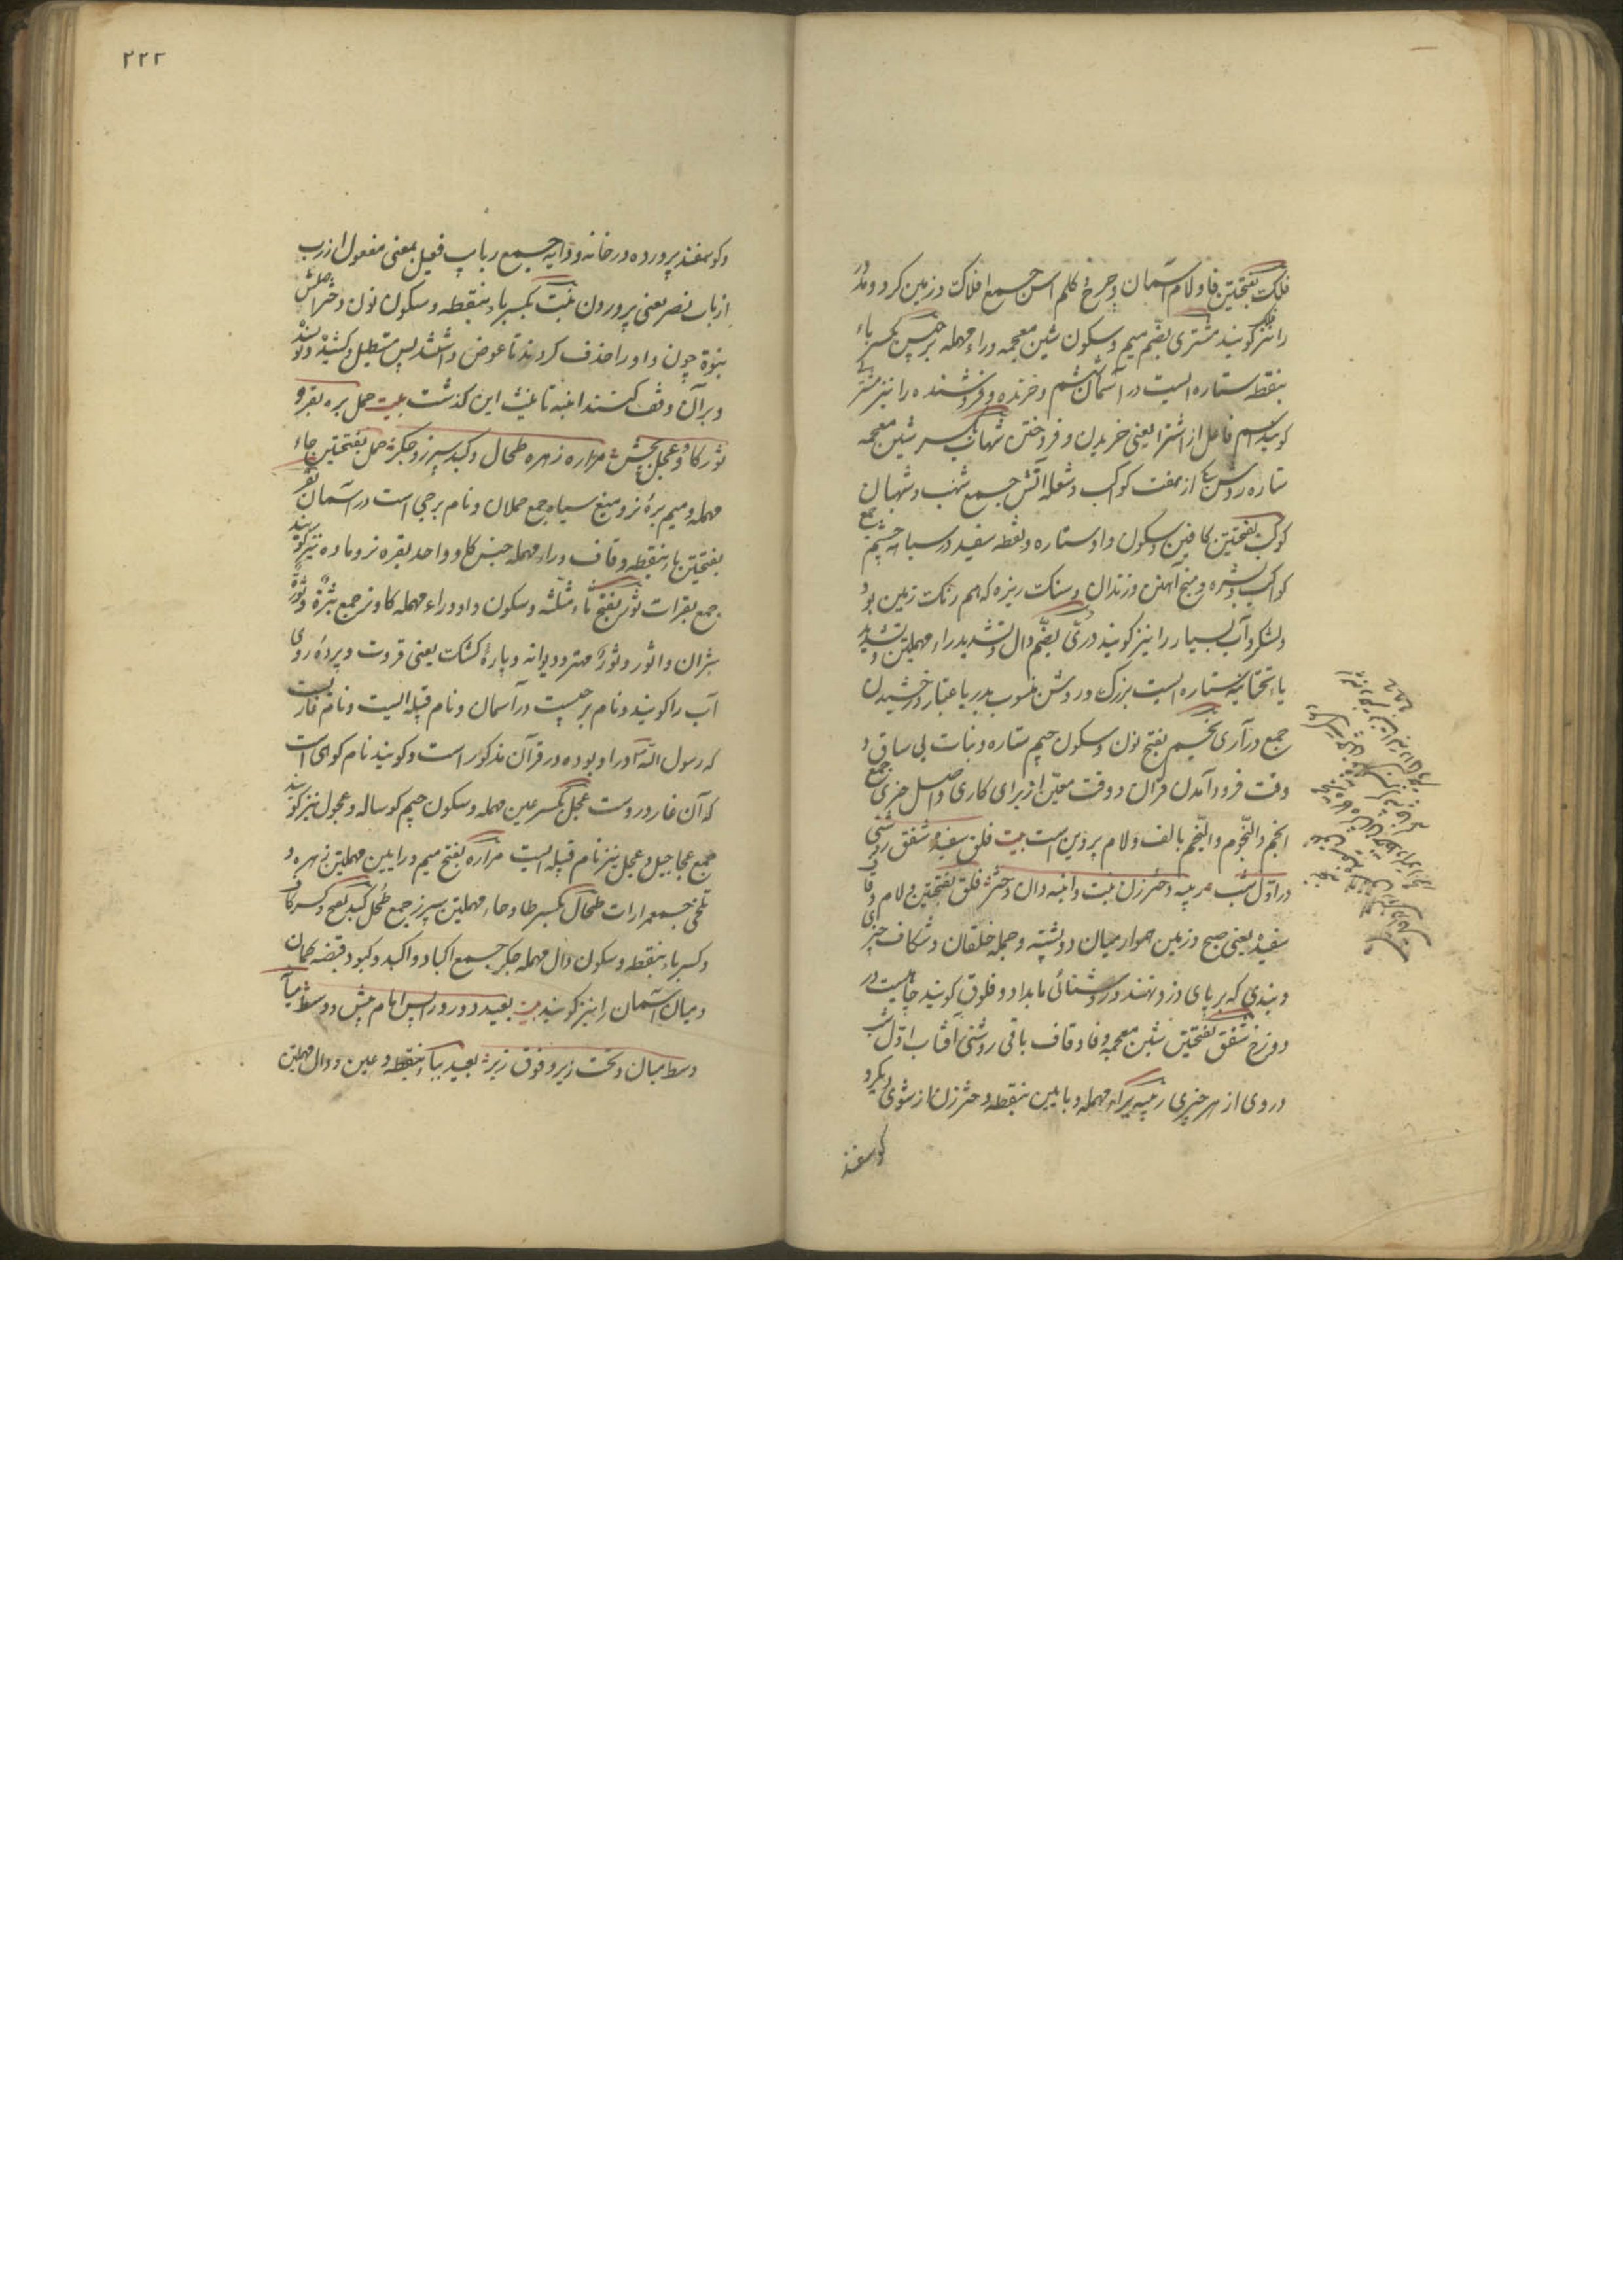 فلک بفتحتین فا و لام آسمان و چرخ و کلم اسن جمیع افلاک و زمین کرد و مدور
را نیز کویند مشتری بضم میم و سکون شین معجمه و راء مهمله برجیس بکسر باء
بنقطه ستاره ایست در آسمان ششم و خرنده و فروشنده را نیز مشتری
کویند اسم فاعل از اشترا یعنی خریدن و فروختن شهاب بکسر شین معجمه
ستاره روشن از هفت کواکب و شعله آتش جمع شهب و شهبان
کوکب بفتحتین کافین و سکون واو ستاره و نقطه سفید در سیاه چشم جمع
کواکب و میخ آهنین و زندان و سنک ریزه که هم رنک زمین بود
و لشکر و آب بسیار را نیز کویند درّی بضم دال و تشدید راء مهملتین و تشدید
یاء تحتانیه ستاره ایست بزرک و روشن منسوب بدر باعتبار درخشیدن
جمع درآری نجم بفتح نون و سکون جیم ستاره و نبات بی ساق و
وقت فرود آمدن قران و وقت معین از برای کاری و اصل چیزی جمع
انجم و النجوم و النجم بالف و لام پروین است بیت فلق سفیده شفق روشنی
در اول شب ربیبه دختر زن بنت و ابنه دان دختر فلق بفتحتین و لام و قاف
سفیده یعنی صبح و زمین هموار میان دو پشته و جمله خلقان و شکاف چیزی
و بندی که بر پای دزد نهند و روشنائی بامداد و فلوق کویند چاهیست در
دوزخ شفق بفتحتین شین معجمه و فا و قاف باقی روشنی آفتاب اول شب
و روی از هر چیزی ربیبه براء مهمله و بایین بنقطه دختر زن از شوی دیکر و
کوسفند
۲۲۲
و کوسفند پرورده در خانه و دایه جمیع ربایب فعیل بمعنی مفعول از رب
از باب نصر یعنی پروردن بنت بکسر باء بنقطه و سکون نون دختر اصلش
بنوة چون واو را حذف کردند تا عوض داشتند پس مستطیل و کشیده نویسند
و بر آن وقف کنند ابنه تانیث این کذشت بیت حمل بره بقر و
ثور کاو و عجل بچش مراره زهره طحال و کبد سپرز و جکر حمل بفتحتین حاء
مهمله و میم بره نر و میغ سیاه جمع حملان و نام برجی است در آسمان بقر
بفتحتین باء بنقطه و قاف و راء مهمله جنس کاو و واحد بقره نر و ماده نیز کویند
جمع بقرات ثور بفتح ثاء مثلثه و سکون واو و راء مهمله کاو نر جمع ثیرة و ثورة
ثیران و اثور و ثور مهتر و دیوانه و پاره کشک یعنی قروت و پرده روی
آب را کویند و نام برجیست در آسمان و نام قبیله ایست و نام غاریست
که رسول الله در او بوده در قرآن مذکور است و کویند نام کوهی است
که آن غار دروست عجل بکسر عین مهمله و سکون جیم کوساله و عجول نیز کویند
جمع عجاجیل و عجل نیز نام قبیله ایست مراره بفتح میم و رایین مهملتین زهره و
تلخی جمع مرارات طحال بکسر طا و حاء مهملتین سپرز جمع طحل کبد بفتح و کسر کاف
و کسر باء بنقطه و سکون دال مهمله جکر جمیع اکباد و اکبد و کبود و قبضه کمان
و میان آسمان را نیز کویند بیت بعید دور ورا پس امام پیش و وسط میان
وسط میان و تحت زیر و فوق زبر بعید بباء بنقطه و عین و دال مهملتین